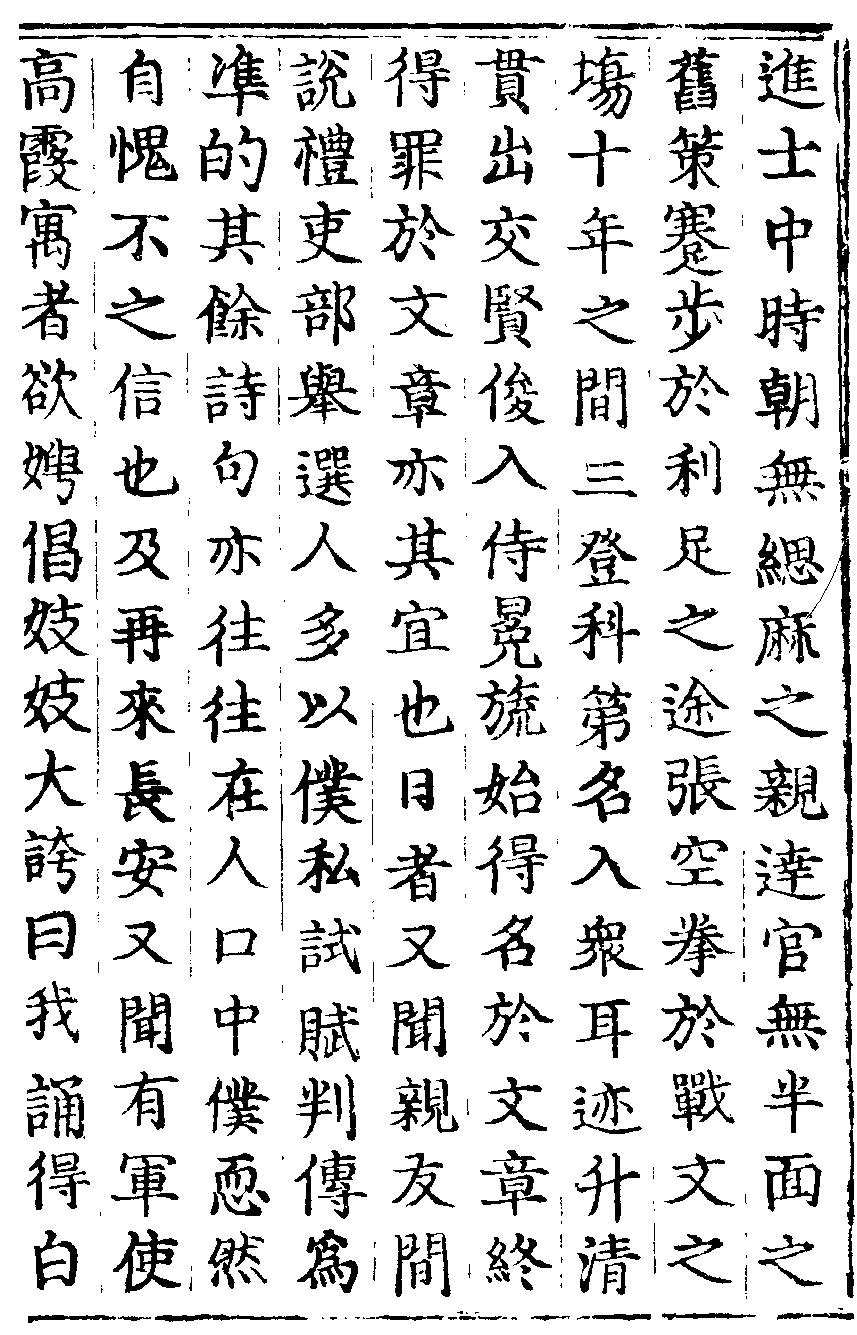 進士中時朝無緦麻之親達官無半面之
舊策蹇步於利足之途張空拳於戰文之
塲十年之間三登科第名入衆耳迹升清
貫出交賢俊入侍冕旒始得名於文章終
得罪於文章亦其宜也日者又聞親友間
說禮吏部舉選人多以僕私試賦判傳爲
凖的其餘詩句亦往往在人口中僕恧然
自愧不之信也及再來長安又聞有軍使
高霞寓者欲娉倡妓妓大誇曰我誦得白